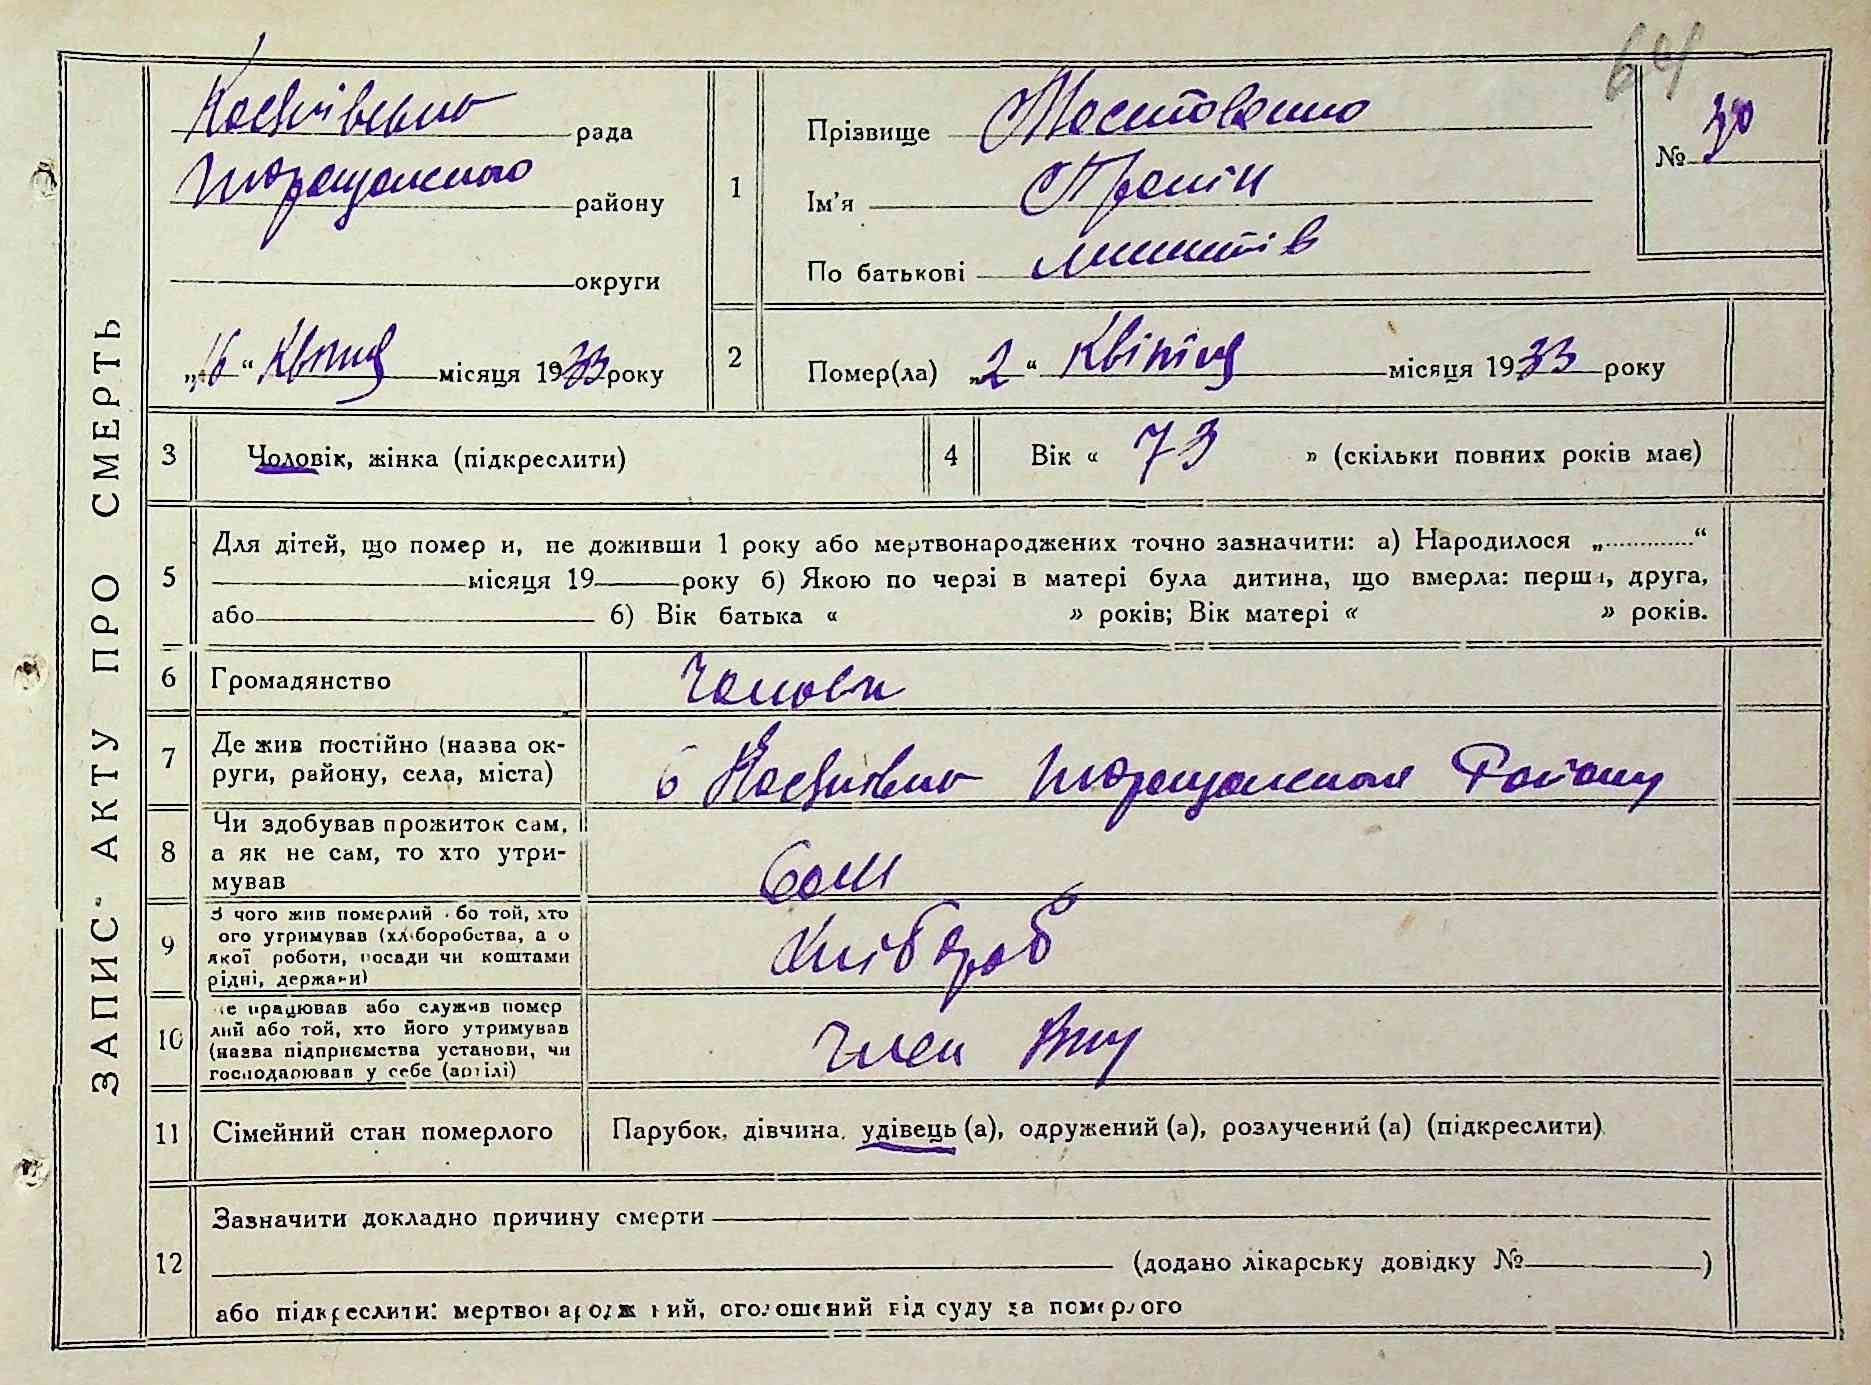 64
ЗАПИС АКТУ ПРО СМЕРТЬ
рада
Таращанского району
округи
„16“ Квітня місяця 1933 року
1
Прізвище
Ім'я
По батькові
№ 30
2
Помер(ла) „2“ Квітня місяця 1933 року
3
Чоловік, жінка (підкреслити)
4
Вік « 73 » (скільки повних років має)
5
Для дітей, що помер и, не доживши 1 року або мертвонароджених точно зазначити: а) Народилося „............“
місяця 19 року б) Якою по черзі в матері була дитина, що вмерла: перша, друга,
або б) Вік батька « » років; Вік матері « » років.
6
Громадянство
7
Де жив постійно (назва ок-
руги, району, села, міста)
Таращанского Району
8
Чи здобував прожиток сам,
а як не сам, то хто утри-
мував
Сам
9
З чого жив померлий або той, хто
ого утримував (хліборобства, а о
якої роботи, посади чи коштами
рідні, держави)
Хлібороб
10
е працював або служив помер
лий або той, хто його утримував
(назва підприємства установи, чи
господарював у себе (артілі)
Член
11
Сімейний стан померлого
Парубок, дівчина, удівець (а), одружений (а), розлучений (а) (підкреслити)
12
Зазначити докладно причину смерти
(додано лікарську довідку № )
або підкреслити: мертвонароджений, оголошений від суду за померлого